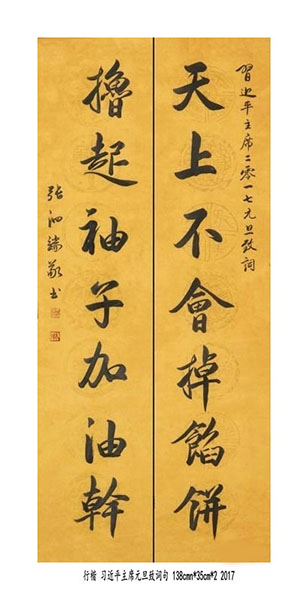 習近平主席二零一七元旦致詞
天上不會掉餡餅
擼起袖子加油幹
張泗瑞敬书
行楷 习近平主席元旦致词句 138cmn*35cm*2 2017